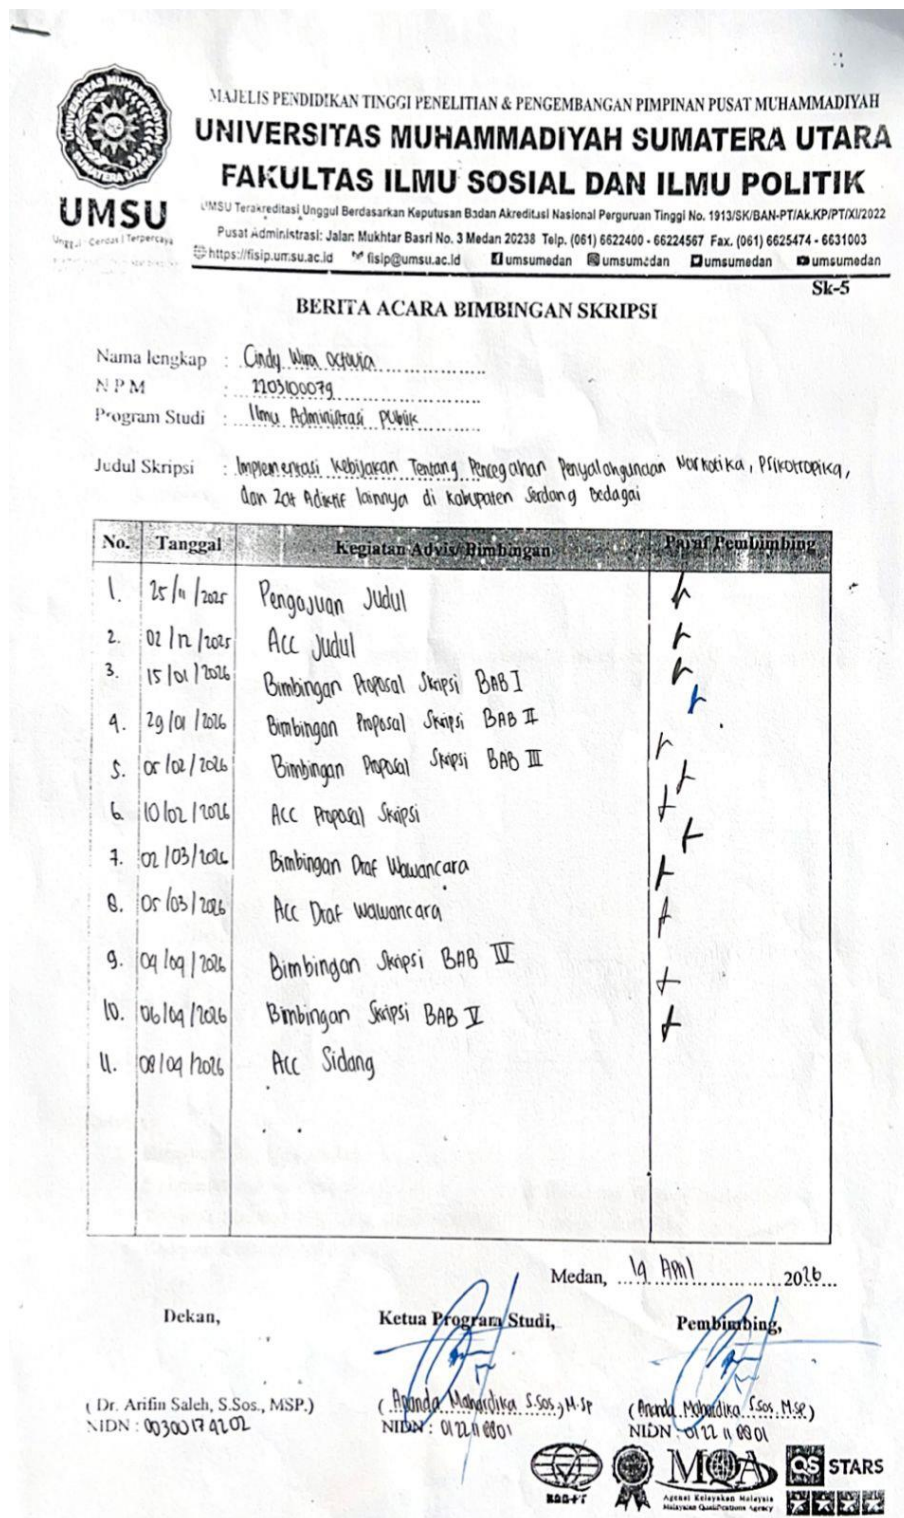 MAJELIS PENDIDIKAN TINGGI PENELITIAN & PENGEMBANGAN PIMPINAN PUSAT MUHAMMADIYAH
UNIVERSITAS MUHAMMADIYAH SUMATERA UTARA
FAKULTAS ILMU SOSIAL DAN ILMU POLITIK
UMSU
Unggul | Cerdas | Terpercaya
UMSU Terakreditasi Unggul Berdasarkan Keputusan Badan Akreditasi Nasional Perguruan Tinggi No. 1913/SK/BAN-PT/Ak.KP/PT/XI/2022
Pusat Administrasi: Jalan Mukhtar Basri No. 3 Medan 20238 Telp. (061) 6622400 - 66224567 Fax. (061) 6625474 - 6631003
https://fisip.umsu.ac.id fisip@umsu.ac.id umsumedan umsumedan umsumedan umsumedan
Sk-5
BERITA ACARA BIMBINGAN SKRIPSI
Nama lengkap : Cindy Wira Octavia
N P M : 2203100079
Program Studi : Ilmu Administrasi Publik
Judul Skripsi : Implementasi Kebijakan Tentang Pencegahan Penyalahgunaan Narkotika, Psikotropika,
dan Zat Adiktif lainnya di Kabupaten Serdang Bedagai
No. Tanggal Kegiatan Advis/Bimbingan Paraf Pembimbing
1. 25/11/2025 Pengajuan Judul
2. 02/12/2025 Acc Judul
3. 15/01/2026 Bimbingan Proposal Skripsi BAB I
4. 29/01/2026 Bimbingan Proposal Skripsi BAB II
5. 05/02/2026 Bimbingan Proposal Skripsi BAB III
6. 10/02/2026 Acc Proposal Skripsi
7. 02/03/2026 Bimbingan Draf Wawancara
8. 05/03/2026 Acc Draf Wawancara
9. 04/04/2026 Bimbingan Skripsi BAB IV
10. 06/04/2026 Bimbingan Skripsi BAB V
11. 08/04/2026 Acc Sidang
Medan, 14 April 2026
Dekan, Ketua Program Studi, Pembimbing,
( Dr. Arifin Saleh, S.Sos., MSP.) (Ananda Mahardika S.Sos, M.SP (Ananda Mahardika S.Sos, M.SP)
NIDN : 0030017402 NIDN : 0122118801 NIDN : 0122118801
BAN-PT MQA QS STARS
Agensi Kelayakan Malaysia
Malaysian Qualifications Agency